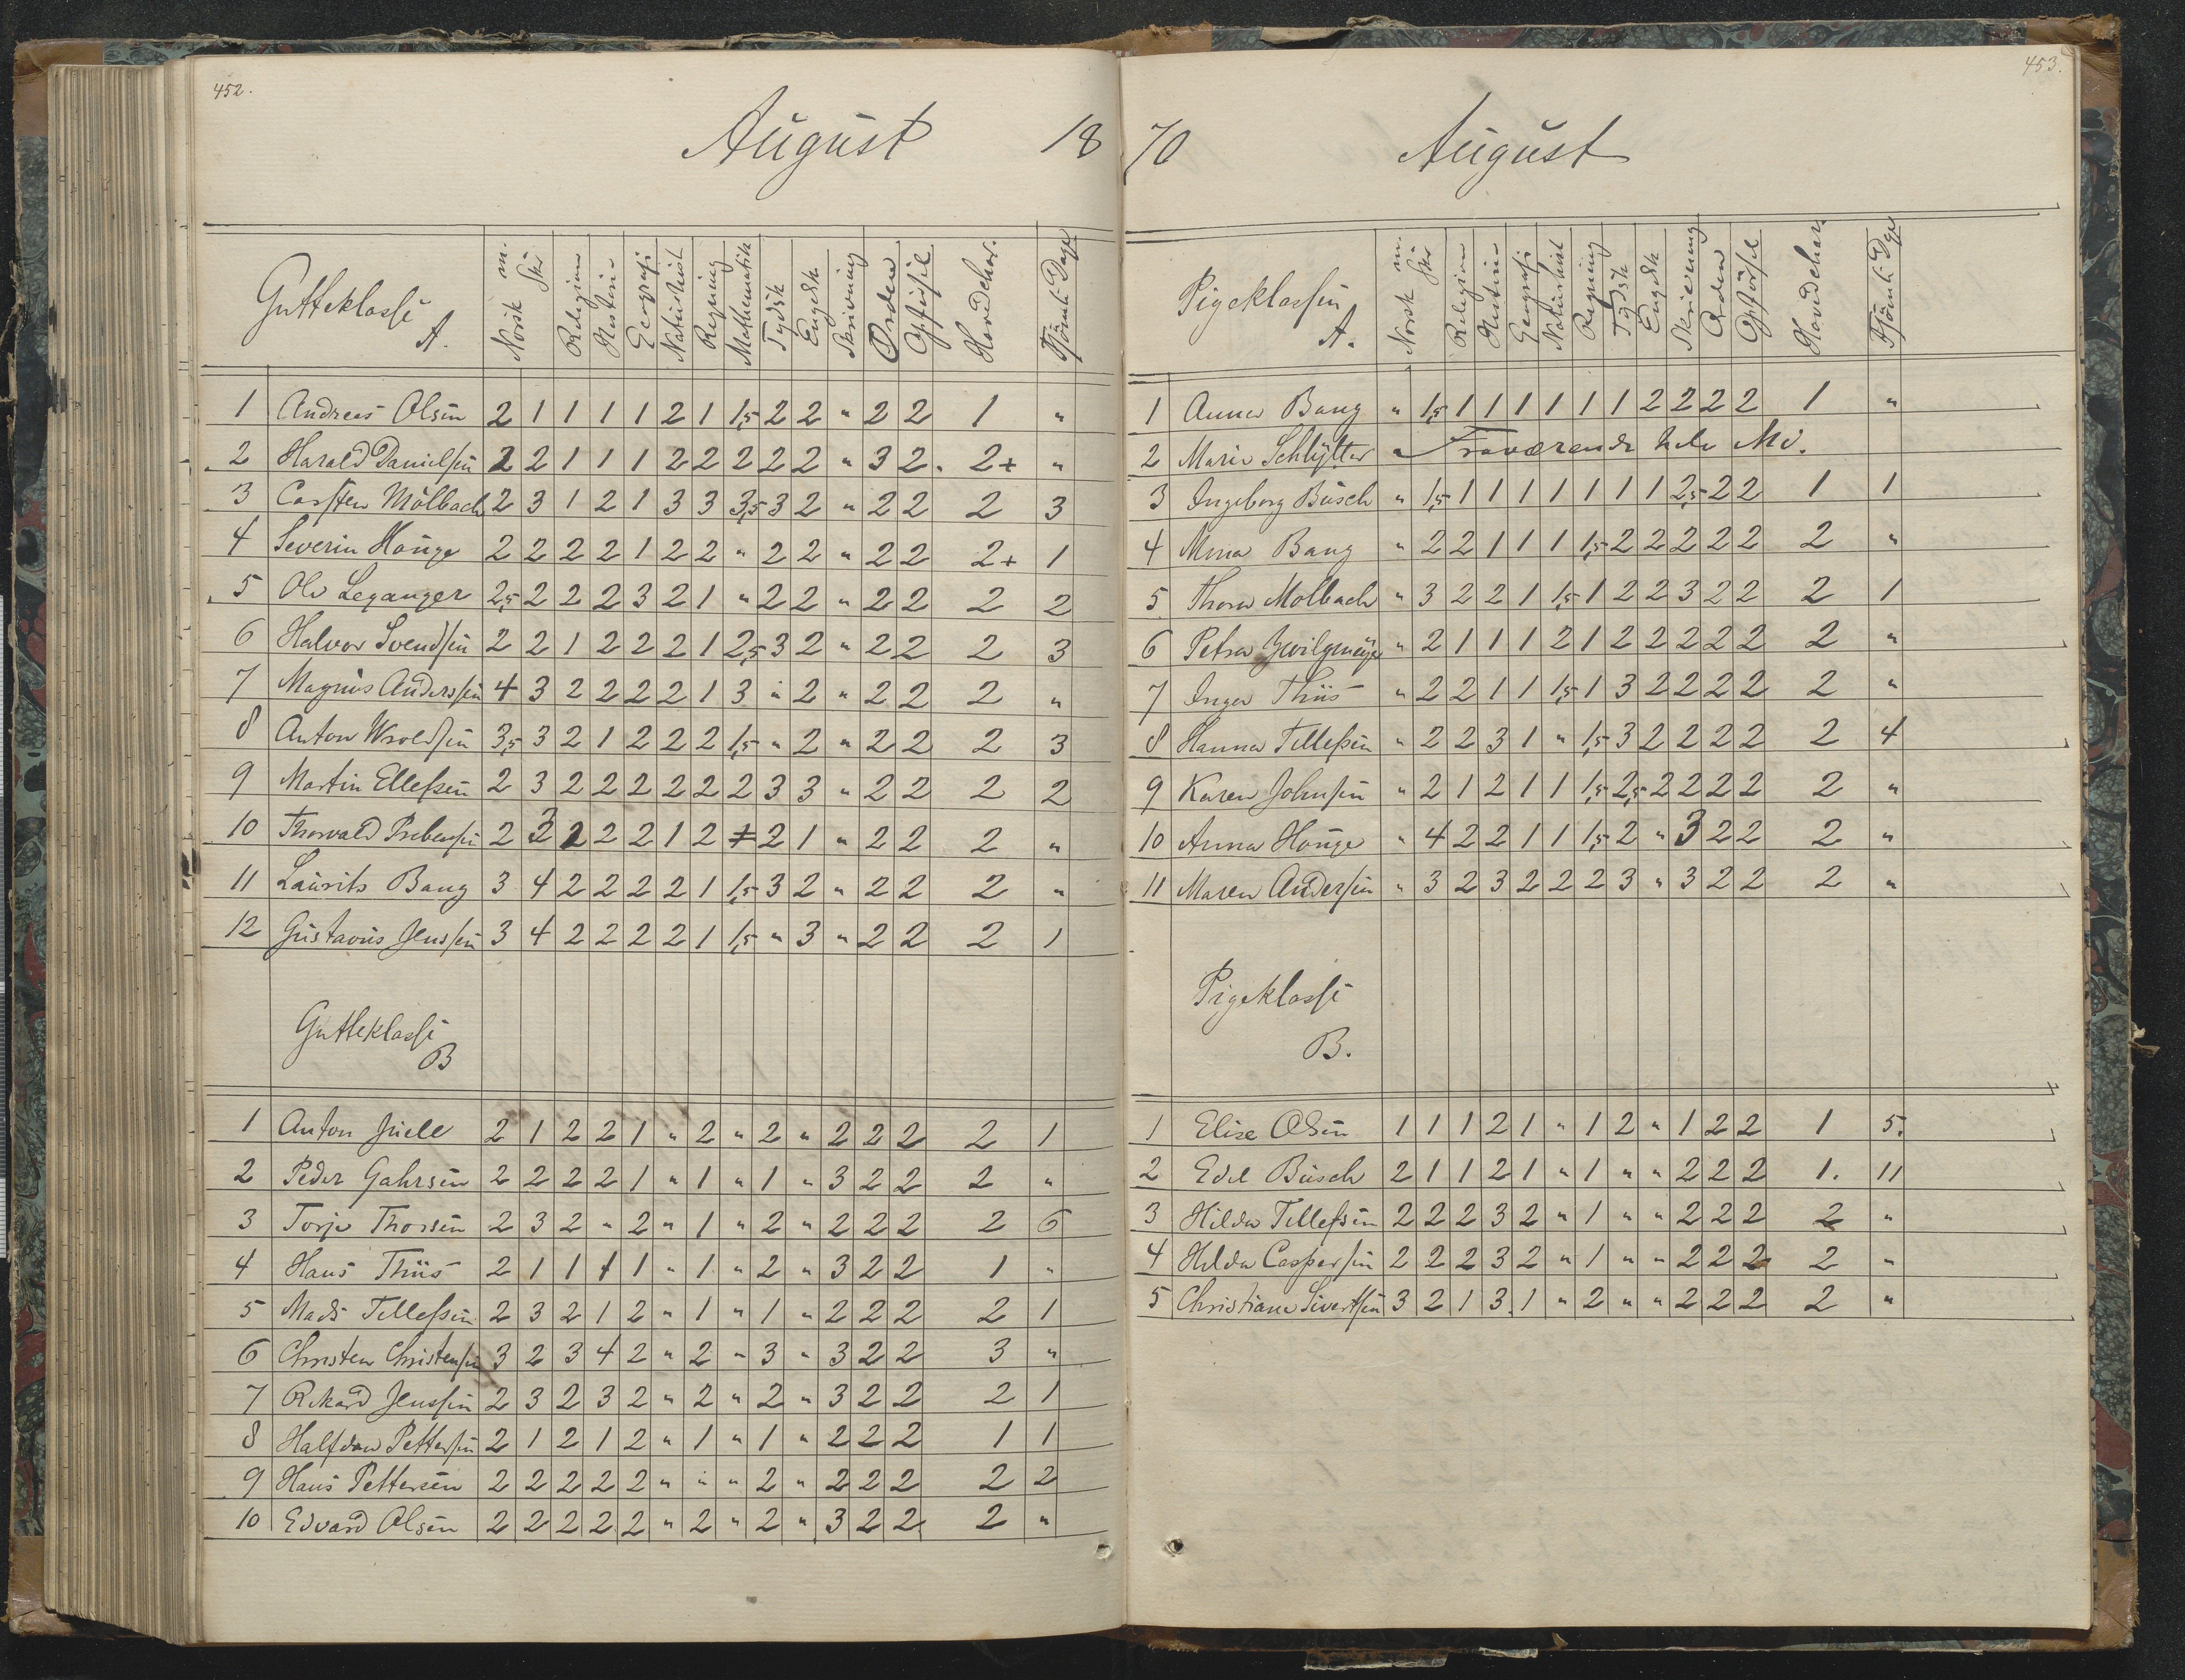 452.
August 18
Gutteklasse A. Norsk m. Skr Religion Historie Geografi Naturhist Regning Mathematik Tydsk Engelsk Skrivning Orden Opførsel Hovedchar. Forsømte Dage
1 Andreas Olsen 2 1 1 1 1 2 1 1,5 2 2 " 2 2 1 "
2 Harald Danielsen 2 2 1 1 1 2 2 2 2 2 " 3 2. 2+ "
3 Carsten Mölbach 2 3 1 2 1 3 3 3,5 3 2 " 2 2 2 3
4 Severin Houge 2 2 2 2 1 2 2 " 2 2 " 2 2 2+ 1
5 Ole Leganger 2,5 2 2 2 3 2 1 " 2 2 " 2 2 2 2
6 Halvor Svendsen 2 2 1 2 2 2 1 2,5 3 2 " 2 2 2 3
7 Magnus Anderssen 4 3 2 2 2 2 1 3 " 2 " 2 2 2 "
8 Anton Wroldsen 3,5 3 2 1 2 2 2 1,5 " 2 " 2 2 2 3
9 Martin Ellefsen 2 3 2 2 2 2 2 2 3 3 " 2 2 2 2
10 Thorvald Prebensen 2 3 2 2 2 1 2 2 1 " 2 2 2 "
11 Laurits Bang 3 4 2 2 2 2 1 1,5 3 2 " 2 2 2 "
12 Gustavus Jenssen 3 4 2 2 2 2 1 1,5 " 3 " 2 2 2 1
Gutteklasse
B
1 Anton Juell 2 1 2 2 1 " 2 " 2 " 2 2 2 2 1
2 Peder Gahrsen 2 2 2 2 1 " 1 " 1 " 3 2 2 2 "
3 Torje Thorsen 2 3 2 " 2 " 1 " 2 " 2 2 2 2 6
4 Hans Thiis 2 1 1 1 1 " 1 " 2 " 3 2 2 1 "
5 Mads Tellefsen 2 3 2 1 2 " 1 " 1 " 2 2 2 2 1
6 Christen Christensen 3 2 3 4 2 " 2 " 3 " 3 2 2 3 "
7 Rikard Jenssen 2 3 2 3 2 " 2 " 2 " 3 2 2 2 1
8 Halfdan Pettersen 2 1 2 1 2 " 1 " 1 " 2 2 2 1 1
9 Hans Pettersen 2 2 2 2 2 " " " 2 " 2 2 2 2 2
10 Edvard Olsen 2 2 2 2 2 " 2 " 2 " 3 2 2 2 "
453.
70 August
Pigeklassen A. Norsk m. Skr Religion Historie Geografi Naturhist Regning Tydsk Engelsk Skrivning Orden Opførsel Hovedchar. Forsømte Dage
1 Anna Bang " 1,5 1 1 1 1 1 1 2 2 2 2 1 "
2 Marie Schlytter " Fraværende hele Md.
3 Ingeborg Busch " 1,5 1 1 1 1 1 1 1 2,5 2 2 1 1
4 Mina Bang " 2 2 1 1 1 1,5 2 2 2 2 2 2 "
5 Thora Molbach " 3 2 2 1 1,5 1 2 2 3 2 2 2 1
6 Petra Zwilgmeyer " 2 1 1 1 2 1 2 2 2 2 2 2 "
7 Inger Thiis " 2 2 1 1 1,5 1 3 2 2 2 2 2 "
8 Hanna Tellefsen " 2 2 3 1 " 1,5 3 2 2 2 2 2 4
9 Karen Johnsen " 2 1 2 1 1 1,5 2,5 2 2 2 2 2 "
10 Anna Houge " 4 2 2 1 1 1,5 2 " 3 2 2 2 "
11 Maren Andersen " 3 2 3 2 2 2 3 " 3 2 2 2 "
Pigeklasse
B.
1 Elise Olsen 1 1 1 2 1 " 1 2 " 1 2 2 1 5.
2 Edel Busch 2 1 1 2 1 " 1 " " 2 2 2 1. 11
3 Hilda Tellefsen 2 2 2 3 2 " 1 " " 2 2 2 2 "
4 Hilda Caspersen 2 2 2 3 2 " 1 " " 2 2 2 2 "
5 Christiane Sivertsen 3 2 1 3 1 " 2 " " 2 2 2 2 "